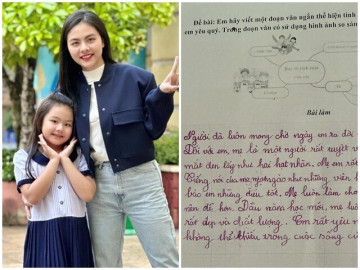 Đề bài: Em hãy viết một đoạn văn ngắn thể hiện tình
em yêu quý. Trong đoạn văn có sử dụng hình ảnh so sán
Bài làm
Người đã luôn mong chờ ngày em ra đời
Đối với em, mẹ là một người rất tuyệt v
mắt đen láy như hai hạt nhãn. Mẹ em rất
tiếng nói của mẹ ngọt ngào như những viên k
bảo em những điều tốt. Mẹ luôn làm cho
nên dễ hơn. Đầu năm học mới, mẹ luô
rất đẹp và chất lượng. Em rất yêu m
không thể thiếu trong cuộc sống củ